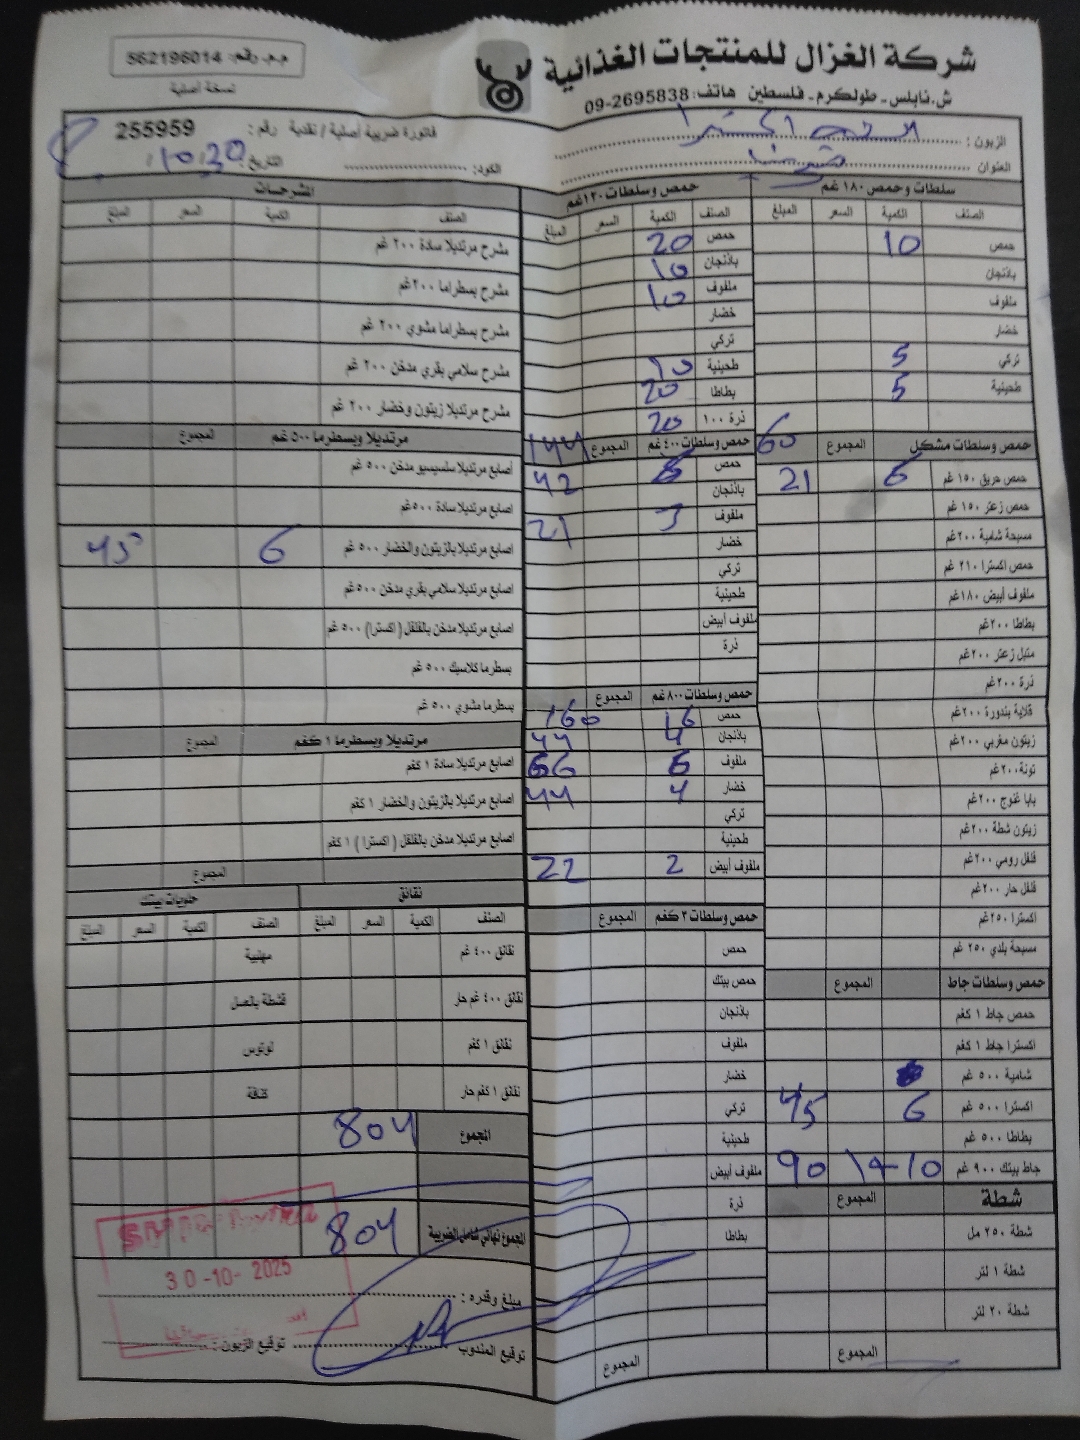 شركة الغزال للمنتجات الغذائية
ش.نابلس - طولكرم - فلسطين هاتف: 09-2695838
م.م. رقم: 562196014
نسخة أصلية
فاتورة ضريبية أصلية / نقدية رقم: 255959
الزبون:
العنوان:
الكود:
التاريخ: 10 30
سلطات وحمص ١٨٠ غم
الصنف الكمية السعر المبلغ
حمص 10
باذنجان
ملفوف
خضار
تركي 5
طحينية 5
حمص وسلطات مشكل المجموع 60
حمص حريق ١٥٠ غم 6 21
حمص زعتر ١٥٠ غم
مسبحة شامية ٢٠٠غم
حمص اكسترا ٢١٠ غم
ملفوف أبيض ١٨٠غم
بطاطا ٢٠٠غم
متبل زعتر ٢٠٠ غم
ذرة ٢٠٠غم
قلاية بندورة ٢٠٠غم
زيتون مغربي ٢٠٠غم
تونة ٢٠٠غم
بابا غنوج ٢٠٠غم
زيتون شطة ٢٠٠غم
فلفل رومي ٢٠٠غم
فلفل حار ٢٠٠غم
اكسترا ٢٥٠غم
مسبحة بلدي ٢٥٠ غم
حمص وسلطات جاط المجموع
حمص جاط ١ كغم
اكسترا جاط ١ كغم
شامية ٥٠٠ غم
اكسترا ٥٠٠ غم 6 45
بطاطا ٥٠٠ غم
جاط بيتك ٩٠٠ غم 10 90
شطة المجموع
شطة ٢٥٠ مل
شطة ١ لتر
شطة ٢٠ لتر
المجموع
حمص وسلطات ١٢٠غم
الصنف الكمية السعر المبلغ
حمص 20
باذنجان 10
ملفوف 10
خضار
تركي
طحينية 10
بطاطا 20
ذرة ١٠٠ 20
حمص وسلطات ٤٠٠ غم المجموع 144
حمص 6 42
باذنجان
ملفوف 3 21
خضار
تركي
طحينية
ملفوف أبيض
ذرة
حمص وسلطات ٨٠٠ غم المجموع
حمص 16 160
باذنجان 4 44
ملفوف 6 66
خضار 4 44
تركي
طحينية
ملفوف أبيض 2 22
حمص وسلطات ٣ كغم المجموع
حمص
حمص بيتك
باذنجان
ملفوف
خضار
تركي
طحينية
ملفوف أبيض
ذرة
بطاطا
المجموع
المشرحات
الصنف الكمية السعر المبلغ
مشرح مرتديلا سادة ٢٠٠ غم
مشرح بسطراما ٢٠٠غم
مشرح بسطراما مشوي ٢٠٠ غم
مشرح سلامي بقري مدخن ٢٠٠ غم
مشرح مرتديلا زيتون وخضار ٢٠٠ غم
مرتديلا وبسطرما ٥٠٠ غم المجموع
اصابع مرتديلا سلسيسيو مدخن ٥٠٠ غم
اصابع مرتديلا سادة ٥٠٠غم
اصابع مرتديلا بالزيتون والخضار ٥٠٠ غم 6 45
اصابع مرتديلا سلامي بقري مدخن ٥٠٠ غم
اصابع مرتديلا مدخن بالفلفل (اكسترا) ٥٠٠ غم
بسطرما كلاسيك ٥٠٠ غم
بسطرما مشوي ٥٠٠ غم
مرتديلا وبسطرما ١ كغم المجموع
اصابع مرتديلا سادة ١ كغم
اصابع مرتديلا بالزيتون والخضار ١ كغم
اصابع مرتديلا مدخن بالفلفل (اكسترا) ١ كغم
المجموع
نقانق
الصنف الكمية السعر المبلغ
نقانق ٤٠٠ غم
نقانق ٤٠٠ غم حار
نقانق ١ كغم
نقانق ١ كغم حار
حلويات بيتك
الصنف الكمية السعر المبلغ
مهلبية
قشطة بالعسل
لوتوس
كنافة
المجموع 804
المجموع نهائي شامل الضريبة 804
مبلغ وقدره:
توقيع المندوب توقيع الزبون:
30-10-2025